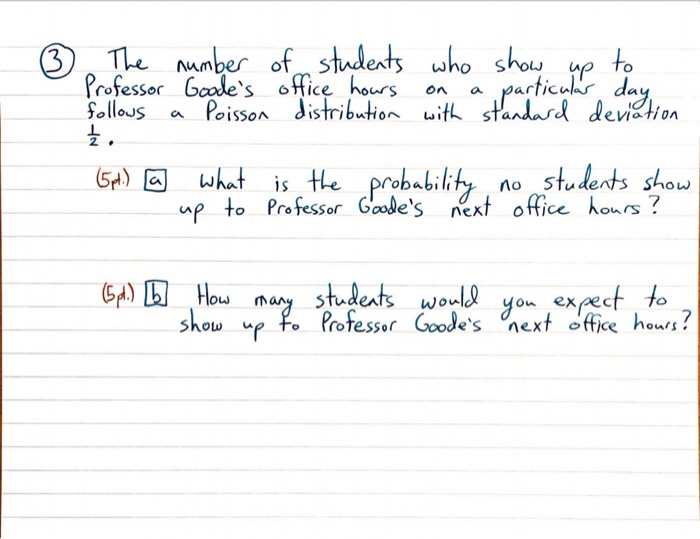 ③ The number of students who show up to
Professor Goode's office hours on a particular day
follows a Poisson distribution with standard deviation
1/2.
(5pt.) a What is the probability no students show
up to Professor Goode's next office hours?
(5pt.) b How many students would you expect to
show up to Professor Goode's next office hours?